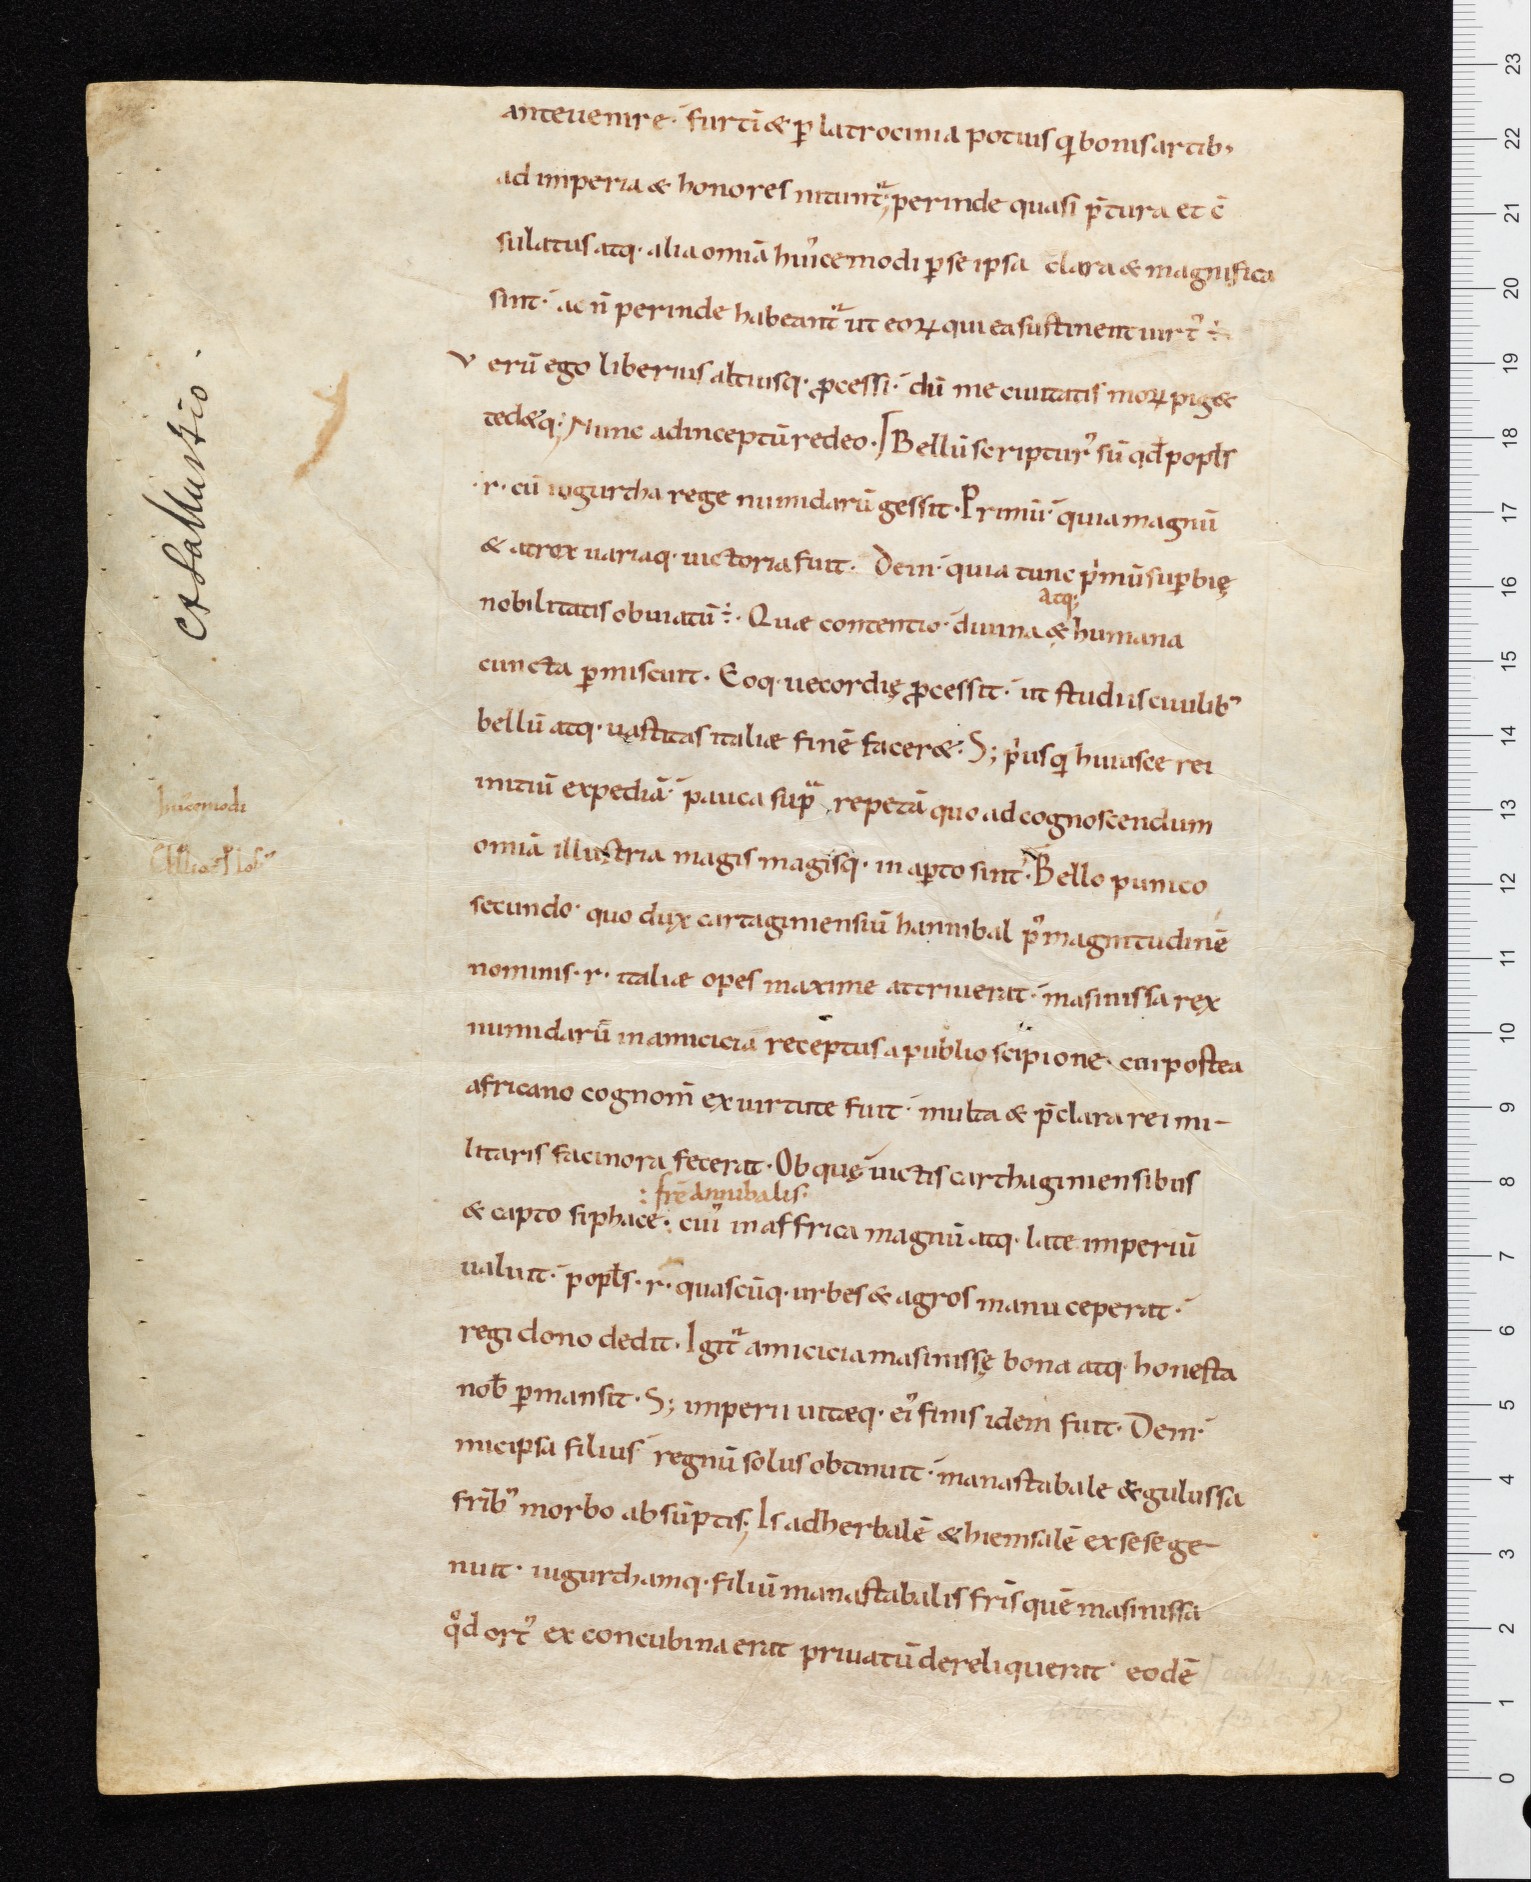 anteuenire· furtī & ꝑ latrocinia potius qͣ bonis artib;
ad imperia & honores nitunt᷑; perinde quasi p̄tura et c̄
sulatus atq· alia om̄ia hui᾿cemodi ꝑ se ipsa clara & magnifica
sint· ac n̄ perinde habeant᷑ ut eoꝝ qui ea sustinent uirt᾿ ÷
Verū ego liberius altiusq· ꝓcessi· dū me ciuitatis moꝝ pig&
ted&q; Nunc ad inceptū redeo· Bellū scriptur᾿ sū qd̄ popl̄s
·r· cū iugurtha rege numidarū gessit· Primū· quia magnū
& atrox uariaq· uictoria fuit· Dein· quia tunc p̍mū suꝑbię
nobilitatis obuiatū ÷· Quae contentio· diuina & humana
atq;
cuncta ꝑmiscuit· Eoq· uecordię ꝓcessit· ut studiis ciuilib᾿
bellū atq· uastitas italiae finē facer&· S; p̍usqͣ huiusce rei
initiū expediā· pauca sup᷑ repetā quo ad cognoscendum
om̄ia illustria magis magisq· in aꝑto sint· Bello punico
secundo· quo dux cartaginensiū hannibal p᾿ magnitudinē
nominis·r· italiae opes maxime attriuerat· masinissa rex
numidarū in amicicia receptus a publio scipione· cui postea
africano cognom̄ ex uirtute fuit· multa & p̄clara rei mi-
litaris facinora fecerat· Ob quę uictis carthaginiensibus
: fr̄e Annibalis·
& capto siphace· cui᾿ in affrica magnū atq· late imperiū
ualuit· popl̄s·r· quascūq· urbes & agros manu ceperat·
regi dono dedit· Igit᷑ amicicia masinissę bona atq· honesta
nob̄ ꝑmansit· S; imperii uitaeq· ei᾿ finis idem fuit· Dein·
micipsa filius regnū solus obtinuit· manastabale & gulussa
fr̄ib᾿ morbo absūptis; Is adherbalē & hiemsalē ex sese ge-
nuit· iugurthamq· filiū manastabalis fr̄is quē masinissa
qd̊ ort᾿ ex concubina erat priuatū dereliquerat· eodē
ex Sallustio.
hui᾿cemodi